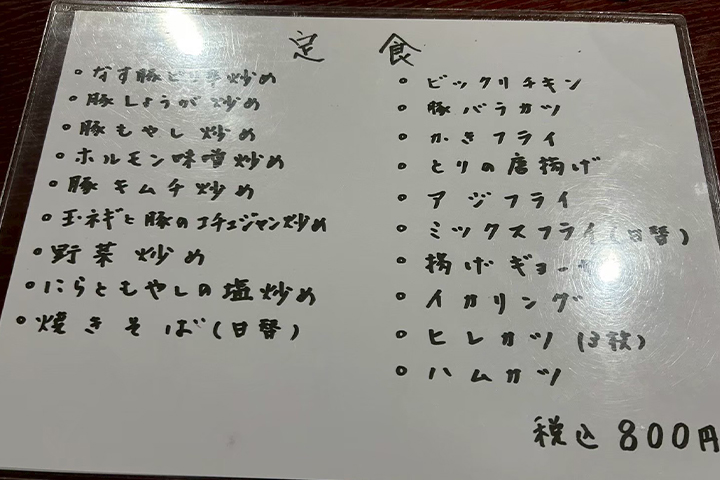 定食
・なす豚ピリ辛炒め
・豚しょうが炒め
・豚もやし炒め
・ホルモン味噌炒め
・豚キムチ炒め
・玉ネギと豚のコチュジャン炒め
・野菜炒め
・にらともやしの塩炒め
・焼きそば(日替)
・ビックリチキン
・豚バラカツ
・かきフライ
・とりの唐揚げ
・アジフライ
・ミックスフライ(日替)
・揚げギョーザ
・イカリング
・ヒレカツ(3枚)
・ハムカツ
税込800円